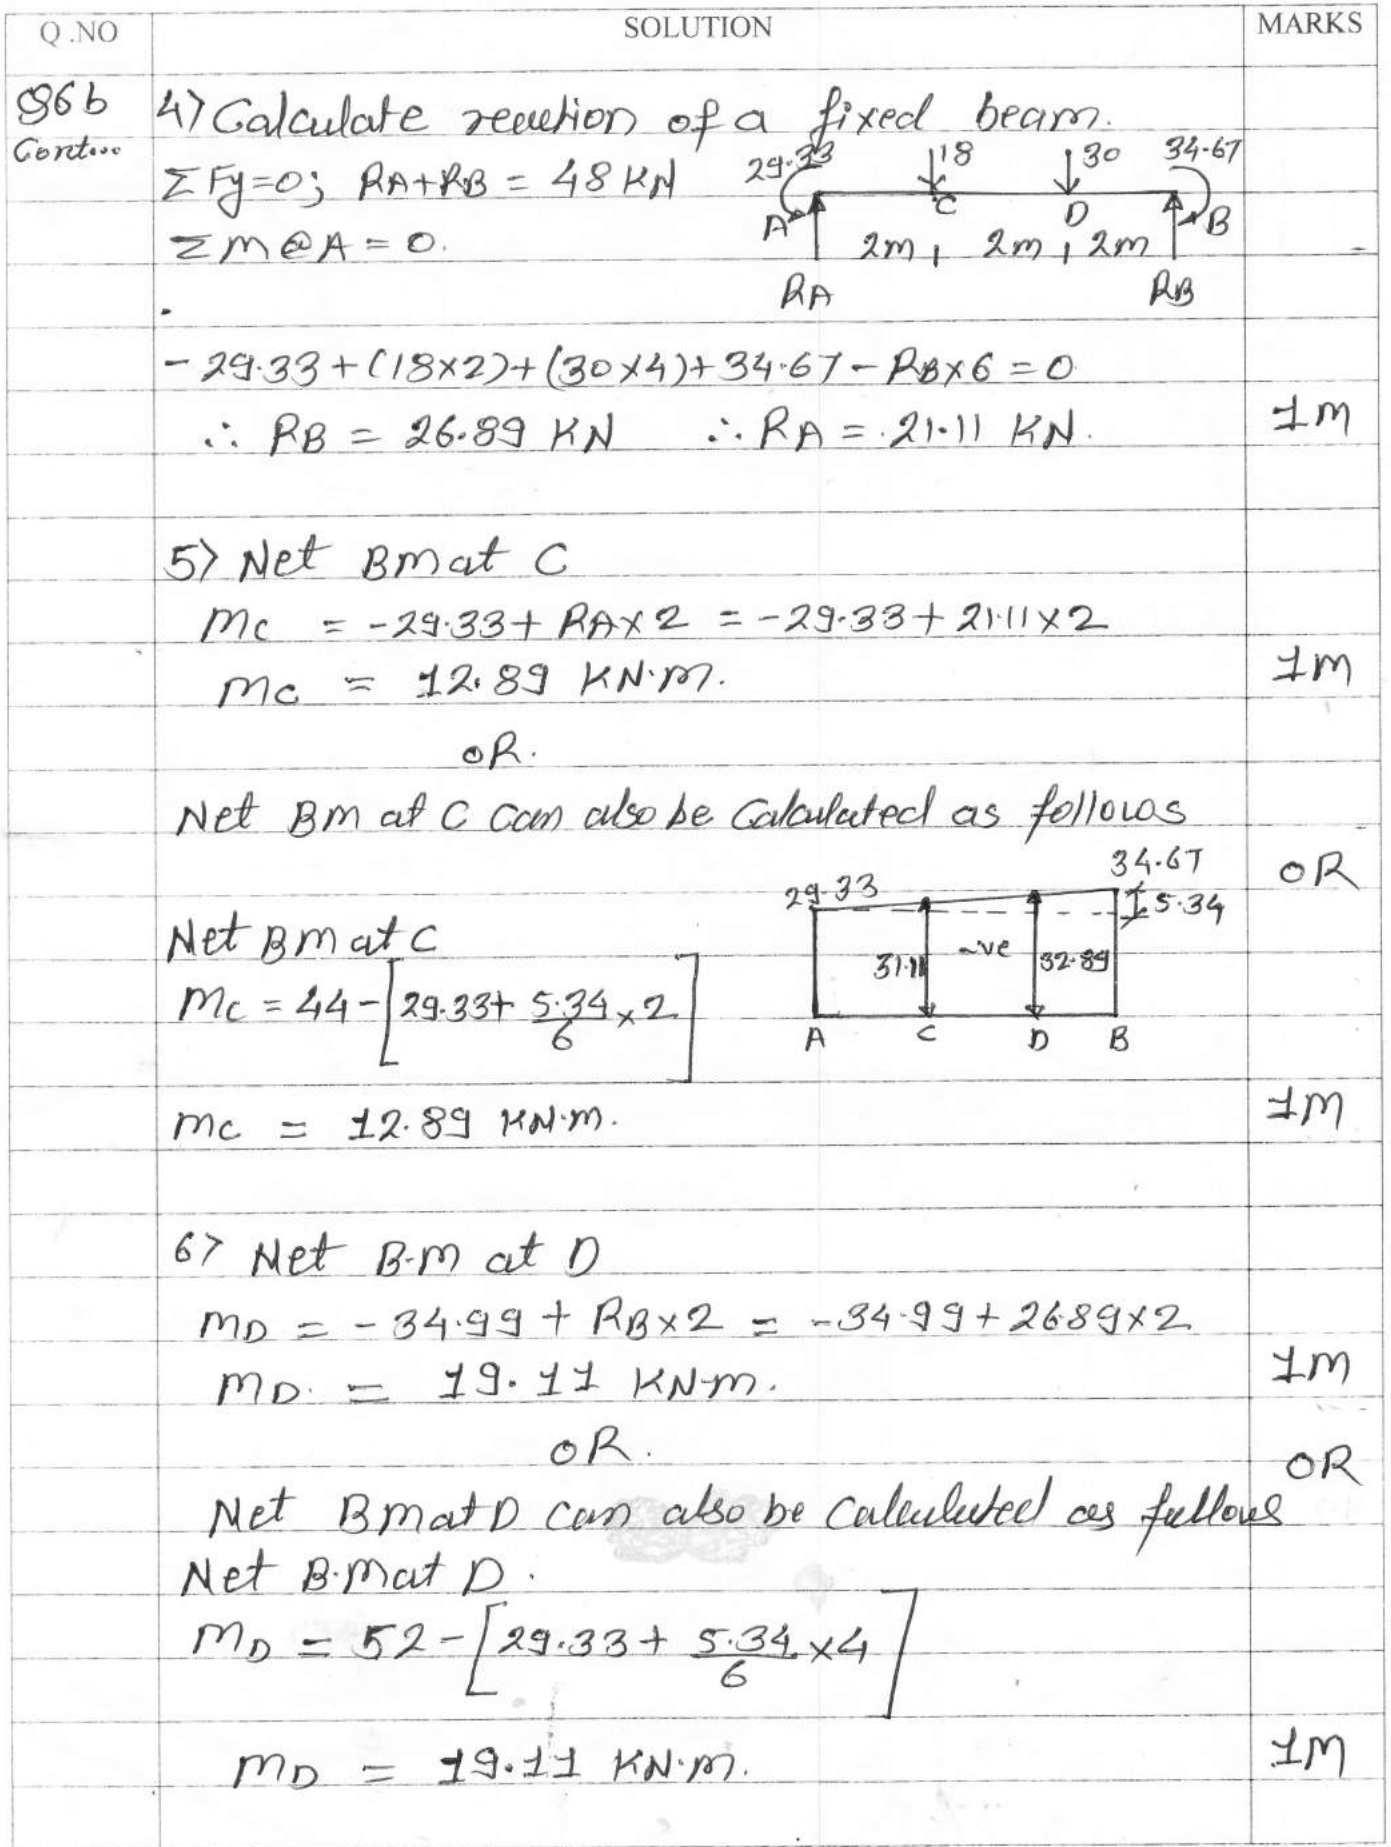 Q.NO SOLUTION MARKS
Q6b 4> Calculate reaction of a fixed beam.
Cont...
ΣFy=0; RA+RB = 48 KN
ΣM@A = 0.
29.33 18 30 34.67
A C D B
2m, 2m, 2m
RA RB
-29.33+(18×2)+(30×4)+34.67-RB×6=0
∴ RB = 26.89 KN ∴ RA = 21.11 KN. 1M
5> Net BM at C
Mc = -29.33+ RA×2 = -29.33+21.11×2
Mc = 12.89 KN.m. 1M
OR.
Net BM at C can also be Calculated as follows
OR
29.33 34.67
5.34
31.11 -ve 32.89
A C D B
Net BM at C
Mc = 44-[29.33+ 5.34/6 ×2]
Mc = 12.89 KN.m. 1M
6> Net B.M at D
MD = -34.99 + RB×2 = -34.99+26.89×2
MD. = 19.11 KN-m. 1M
OR.
OR
Net BM at D can also be Calculated as follows
Net B.M at D.
MD = 52-[29.33+ 5.34/6 ×4]
MD = 19.11 KN.m. 1M